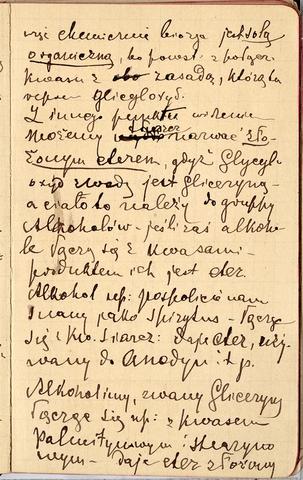 więc chemicznie biorąc jest solą
organiczną, bo powst: z połącz.
kwasu z zasadą, którą tu
repr. gliceryloxyd.
Z innego punktu widzenia
możemy tłuszcz nazwać zło-
żonym eterem, gdyż Glycyl-
oxyd z wodą jest gliceryną-
a ciało to należy do gruppy
Alkoholów- jeśli zaś alkoho-
le łączą się z kwasami-
produktem ich jest eter.
Alkohol np: pospolicie nam
znany jako spirytus- łączy
się z kw. siarcz: daje eter, uży-
wany do Anodyn i t.p.
Alkohol inny, zwany Gliceryną
łącząc się np: z kwasem
palmitynowym i stearyno
wym- daje eter złożony